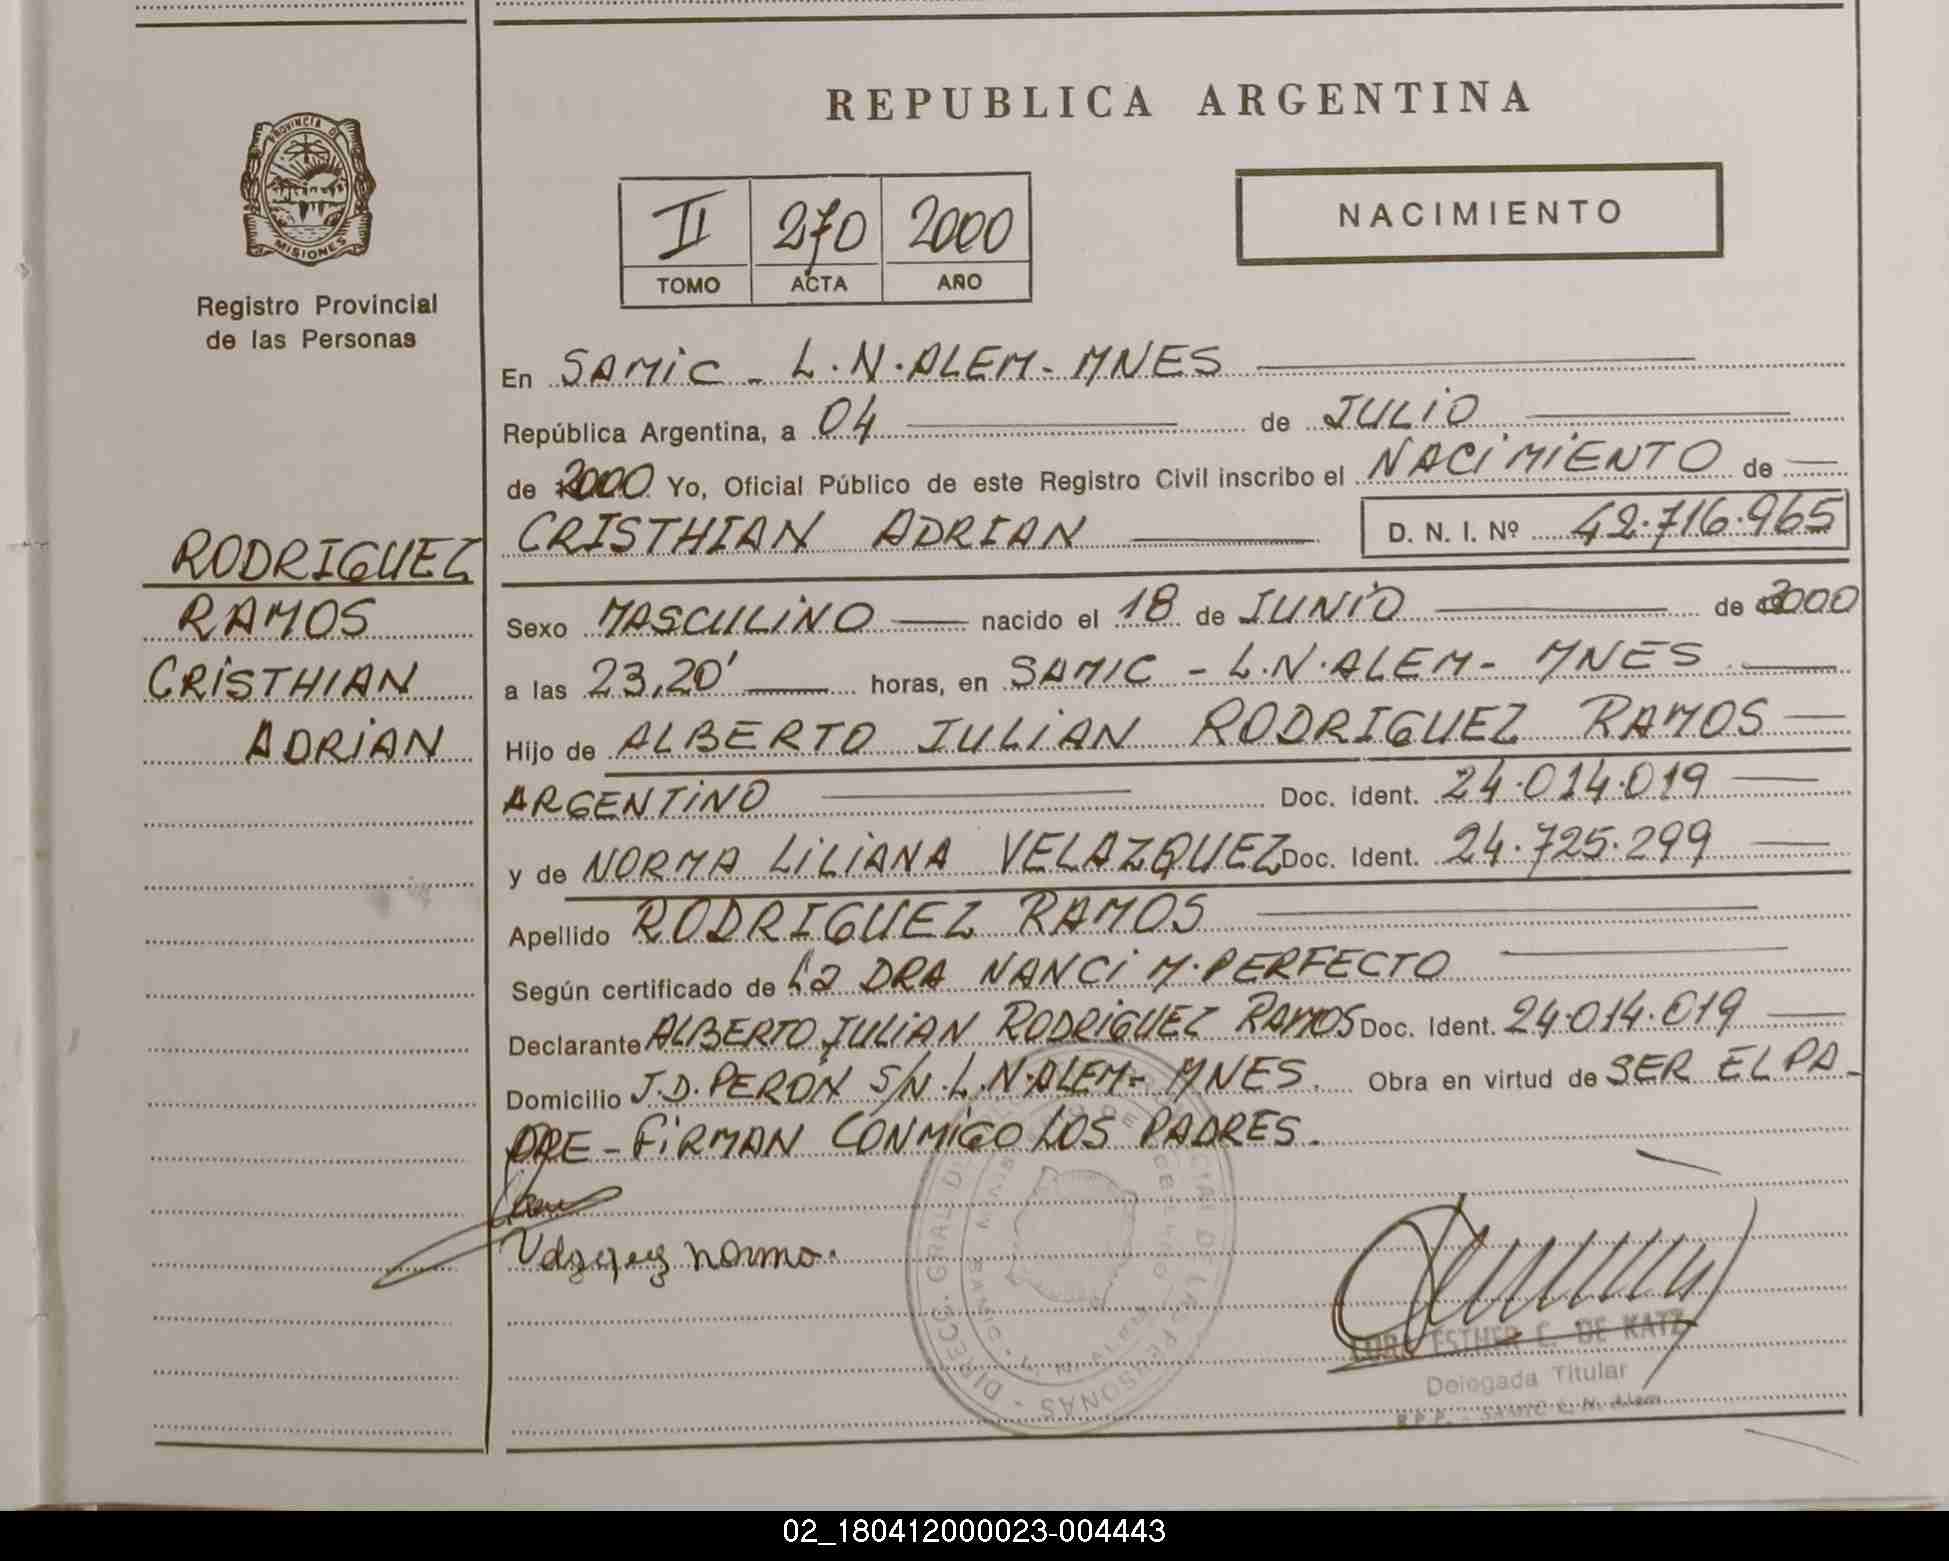 REPUBLICA ARGENTINA
PROVINCIA DE
MISIONES
Registro Provincial
de las Personas
II 270 2000
TOMO ACTA AÑO
NACIMIENTO
En SAMIC - L.N.ALEM - MNES
República Argentina, a 04 de JULIO
de 2000 Yo, Oficial Público de este Registro Civil inscribo el NACIMIENTO de
CRISTHIAN ADRIAN D. N. I. Nº 42.716.965
RODRIGUEZ
RAMOS
CRISTHIAN
ADRIAN
Sexo MASCULINO nacido el 18 de JUNIO de 2000
a las 23,20' horas, en SAMIC - L.N.ALEM - MNES
Hijo de ALBERTO JULIAN RODRIGUEZ RAMOS
ARGENTINO Doc. Ident. 24.014.019
y de NORMA LILIANA VELAZQUEZ Doc. Ident. 24.725.299
Apellido RODRIGUEZ RAMOS
Según certificado de La DRA NANCI M. PERFECTO
Declarante ALBERTO JULIAN RODRIGUEZ RAMOS Doc. Ident. 24.014.019
Domicilio J.D. PERON S/N. L.N.ALEM - MNES. Obra en virtud de SER EL PA-
DRE - FIRMAN CONMIGO LOS PADRES.
Velazquez Norma.
ESTHER C. DE KATZ
Delegada Titular
R.P.P. - SAMIC L. N. Alem
02_180412000023-004443